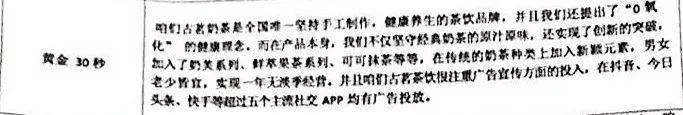 黄金 30 秒
咱们古茗奶茶是全国唯一坚持手工制作，健康养生的茶饮品牌，并且我们还提出了“0 氧
化”的健康理念。而在产品本身，我们不仅坚守经典奶茶的原汁原味，还实现了创新的突破，
加入了奶芙系列、鲜苹果茶系列、可可抹茶等等，在传统的奶茶种类上加入新颖元素，男女
老少皆宜，实现一年无淡季经营。并且咱们古茗茶饮很注重广告宣传方面的投入，在抖音、今日
头条、快手等超过五个主流社交 APP 均有广告投放。